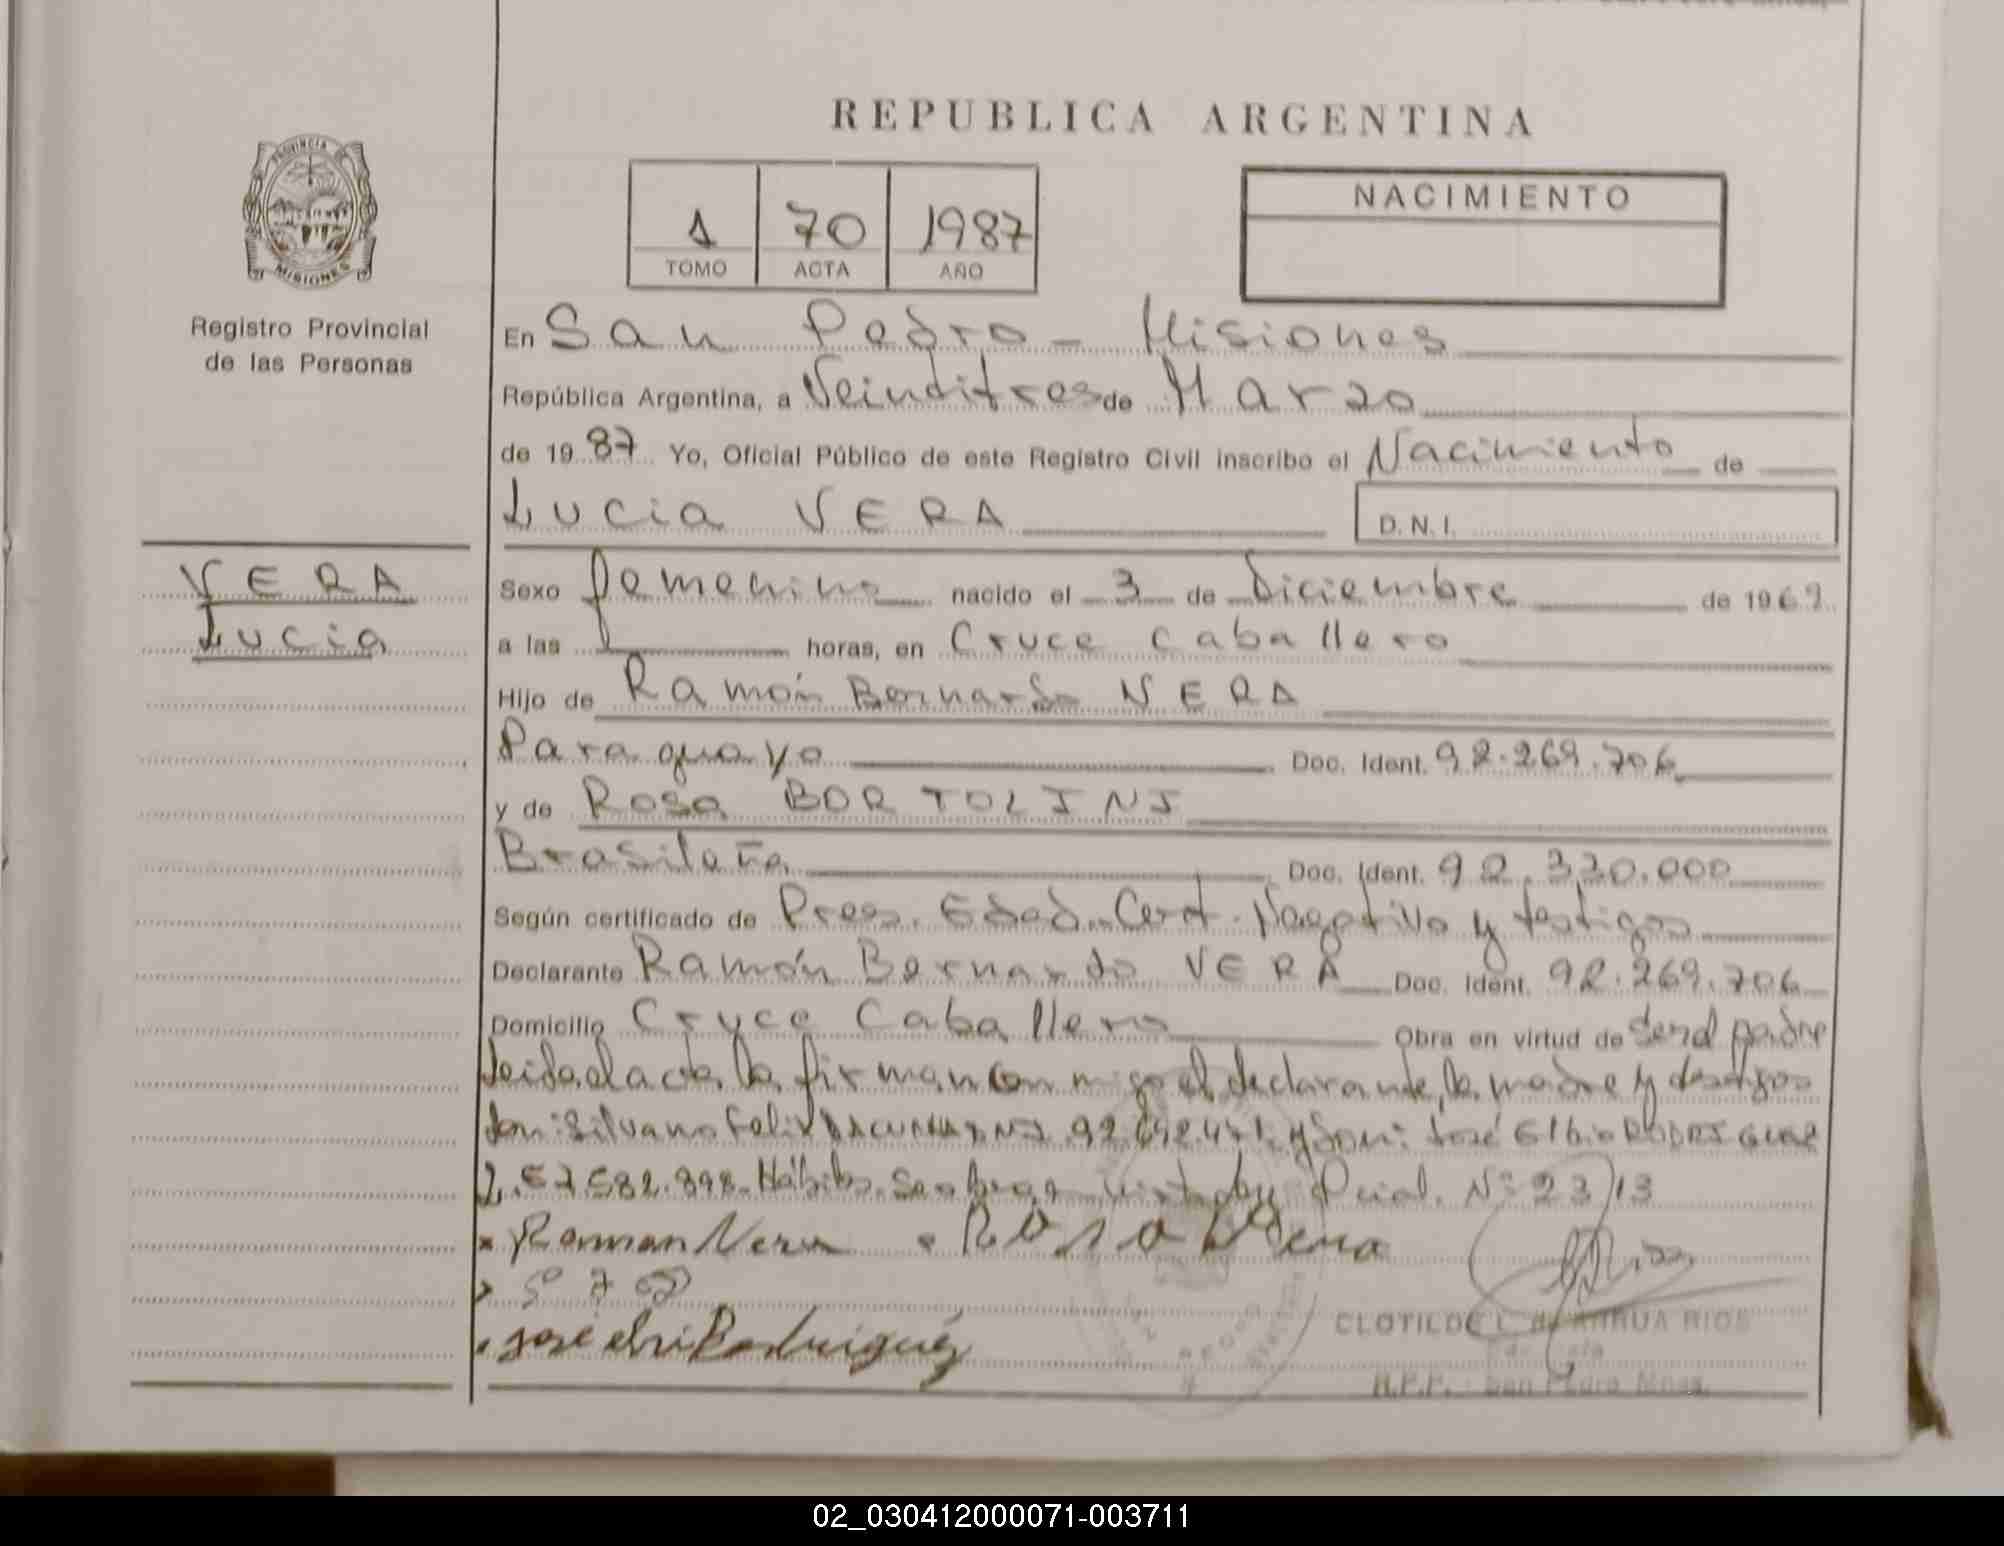 REPUBLICA ARGENTINA
PROVINCIA DE
MISIONES
Registro Provincial
de las Personas
1 70 1987
TOMO ACTA AÑO
NACIMIENTO
En San Pedro - Misiones
República Argentina, a Veintitres de Marzo
de 19 87 Yo, Oficial Público de este Registro Civil inscribo el Nacimiento de
Lucia VERA
D.N.I.
VERA
Lucia
Sexo femenino nacido el 3 de Diciembre de 1969
a las horas, en Cruce Caballero
Hijo de Ramón Bernardo VERA
Paraguayo Doc. Ident. 92.269.706
y de Rosa BORTOLINI
Brasileña Doc. Ident. 92.330.000
Según certificado de Pres. Edad. Cert. Negativo y testigos
Declarante Ramón Bernardo VERA Doc. Ident. 92.269.706
Domicilio Cruce Caballero Obra en virtud de ser el padre
Leida el acta la firman con migo el declarante, la madre y testigos
don: Silvano Felix y don: José Elbio RODRIGUEZ
Pcial. Nº 2313
Roman Vera Rosa Vera
José Rodriguez
CLOTILDE RIOS
R.P.P. - San Pedro Mnes.
02_030412000071-003711